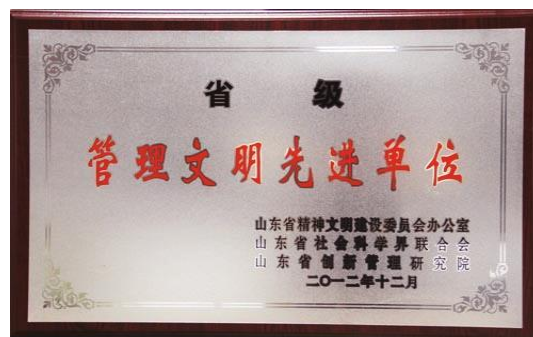 省级
管理文明先进单位
山东省精神文明建设委员会办公室
山东省社会科学界联合会
山东省创新管理研究院
二〇一二年十二月